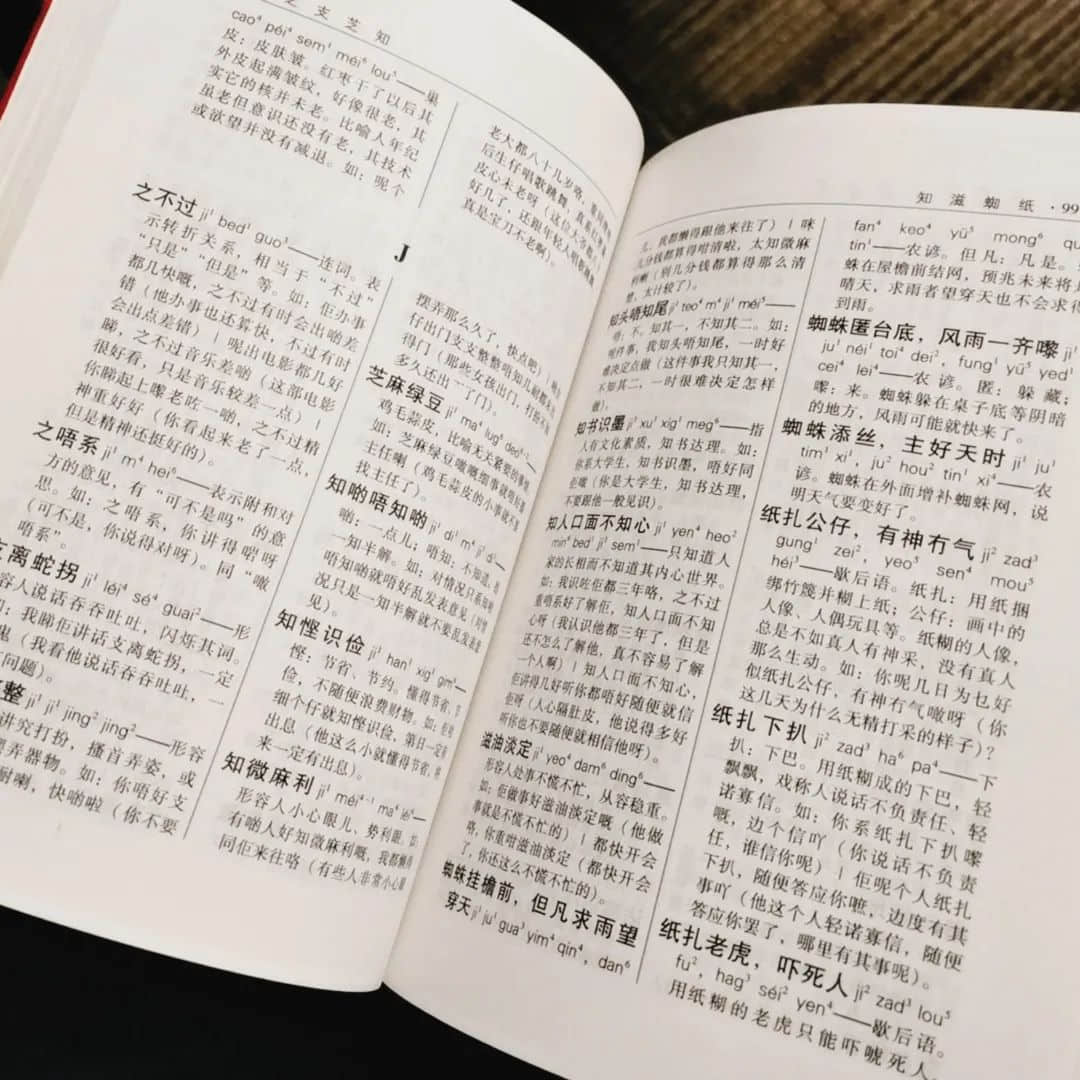 之 支 芝 知
cao⁴ péi⁴ sem¹ méi⁶ lou⁵——巢
皮：皮肤皱。红枣干了以后其
外皮起满皱纹，好像很老，其
实它的核并未老。比喻人年纪
虽老但意识还没有老，其技术
或欲望并没有减退。如：呢个
之不过 ji¹ bed¹ guo³——连词。表
示转折关系，相当于“不过”
“只是”“但是”等。如：佢办事
都几快嘅，之不过有时会出啲差
错（他办事也还算快，不过有时
会出点差错）｜呢出电影都几好
睇，之不过音乐差啲（这部电影
很好看，只是音乐较差一点）｜
你睇起上嚟老咗一啲，之不过精
神重好好（你看起来老了一点，
但是精神还挺好的）。
之唔系 ji¹ m⁴ hei⁶——表示附和对
方的意见，有“可不是吗”的意
思。如：之唔系，你讲得啱呀
（可不是，你说得对呀）。同“噉
唔系”。
离蛇拐 ji¹ léi⁴ sé⁴ guai²——形
容人说话吞吞吐吐，闪烁其词。
：我睇佢讲话支离蛇拐，一定
鬼（我看他说话吞吞吐吐，一
问题）。
整 ji¹ ji¹ jing² jing²——形容
讲究打扮，搔首弄姿，或
弄器物。如：你唔好支
喇，快啲啦（你不要
老大都八十几岁咯，重同啲
后生仔唱歌跳舞，真系红枣巢
皮心未老呀（这位大爷都八
好几了，还跟年轻人唱歌跳舞
真是宝刀不老啊）。
J
摆弄那么久了，快点吧）｜
仔出门支支整整唔知几耐都未出
得门（那些女孩出门，打扮不知
多久还出不了门）。
芝麻绿豆 ji¹ ma⁴ lug⁶ deo⁶⁻²——
鸡毛蒜皮，比喻无关紧要的事情。
如：芝麻绿豆嗰嘅细事就唔好
主任喇（鸡毛蒜皮的小事就不要
找主任了）。
知啲唔知啲 ji¹ di¹ m⁴ ji¹ di¹——
啲：一点儿；唔知：不知道。指
一知半解。如：对情况只系知啲
唔知啲就唔好乱发表意见（对情
况只是一知半解就不要乱发表意
见）。
知悭识俭 ji¹ han¹ xig¹ gim⁶——
悭：节省、节约。懂得节省、节
俭，不随便浪费财物。如：佢
细个仔就知悭识俭，第日一定有
出息（他这么小就懂得节省，将
来一定有出息）。
知微麻利 ji¹ méi⁴⁻¹ ma⁴ léi⁶——
形容人小心眼儿、势利眼。如：
有啲人好知微麻利嘅，我都懒得
同佢来往咯（有些人非常小心眼
知 滋 蜘 纸 · 99
儿，我都懒得跟他来往了）｜咪
几分钱都算得咁清啦，太知微麻
利喇（别几分钱都算得那么清
楚，太计较了）。
知头唔知尾 ji¹ teo⁴ m⁴ ji¹ méi⁵——
不。知其一，不知其二。如：
呢件事，我知头唔知尾，一时好
难决定点做（这件事我只知其一，
不知其二，一时很难决定怎样
做）。
知书识墨 ji¹ xu¹ xig¹ meg⁶——指
人有文化素质，知书达理。如：
佢系大学生，知书识墨，唔好同
佢嗌（你是大学生，知书达理，
不要跟他一般见识）。
知人口面不知心 ji¹ yen⁴ heo²
min⁶ bed¹ ji¹ sem¹——只知道人
家的长相而不知道其内心世界。
如：我识咗佢都三年咯，之不过
重唔系好了解佢，知人口面不知
心呀（我认识他都三年了，但是
还不怎么了解他，真不容易了解
一个人啊）｜知人口面不知心，
佢讲得几好听你都唔好随便就信
佢呀（人心隔肚皮，他说得多好
听你也不要随便就相信他呀）。
滋油淡定 ji¹ yeo⁴ dam⁶ ding⁶——
形容人处事不慌不忙，从容稳重。
如：佢做事好滋油淡定嘅（他做
事就是不慌不忙的）｜都快开会
咯，你重咁滋油淡定（都快开会
了，你还这么不慌不忙的）。
蜘蛛挂檐前，但凡求雨望
穿天 ji¹ ju¹ gua³ yim⁴ qin⁴，dan⁶
fan⁴ keo⁴ yü⁵ mong⁶
tin¹——农谚。但凡：凡是。
蛛在屋檐前结网，预兆未来将是
晴天，求雨者望穿天也不会求得
到雨。
蜘蛛匿台底，风雨一齐嚟 ji¹
ju¹ néi¹ toi⁴ dei²，fung¹ yü⁵ yed¹
cei⁴ lei⁴——农谚。匿：躲藏；
嚟：来。蜘蛛躲在桌子底等阴暗
的地方，风雨可能就快来了。
蜘蛛添丝，主好天时 ji¹ ju¹
tim¹ xi¹，ju² hou² tin¹ xi⁴——农
谚。蜘蛛在外面增补蜘蛛网，说
明天气要变好了。
纸扎公仔，有神冇气 ji² zad³
gung¹ zei²，yeo⁵ sen⁴ mou⁵
héi³——歇后语。纸扎：用纸捆
绑竹篾并糊上纸；公仔：画中的
人像、人偶玩具等。纸糊的人像，
总是不如真人有神采，没有真人
那么生动。如：你呢几日为乜好
似纸扎公仔，有神冇气噉呀（你
这几天为什么无精打采的样子）？
纸扎下扒 ji² zad³ ha⁶ pa⁴——下
扒：下巴。用纸糊成的下巴，轻
飘飘，戏称人说话不负责任、轻
诺寡信。如：你系纸扎下扒嚟
嘅，边个信吖（你说话不负责
任，谁信你呢）｜佢呢个人纸扎
下扒，随便答应你嗻，边度有其
事吖（他这个人轻诺寡信，随便
答应你罢了，哪里有其事呢）。
纸扎老虎，吓死人 ji² zad³ lou⁵
fu²，hag³ séi² yen⁴——歇后语。
用纸糊的老虎只能吓唬死人，